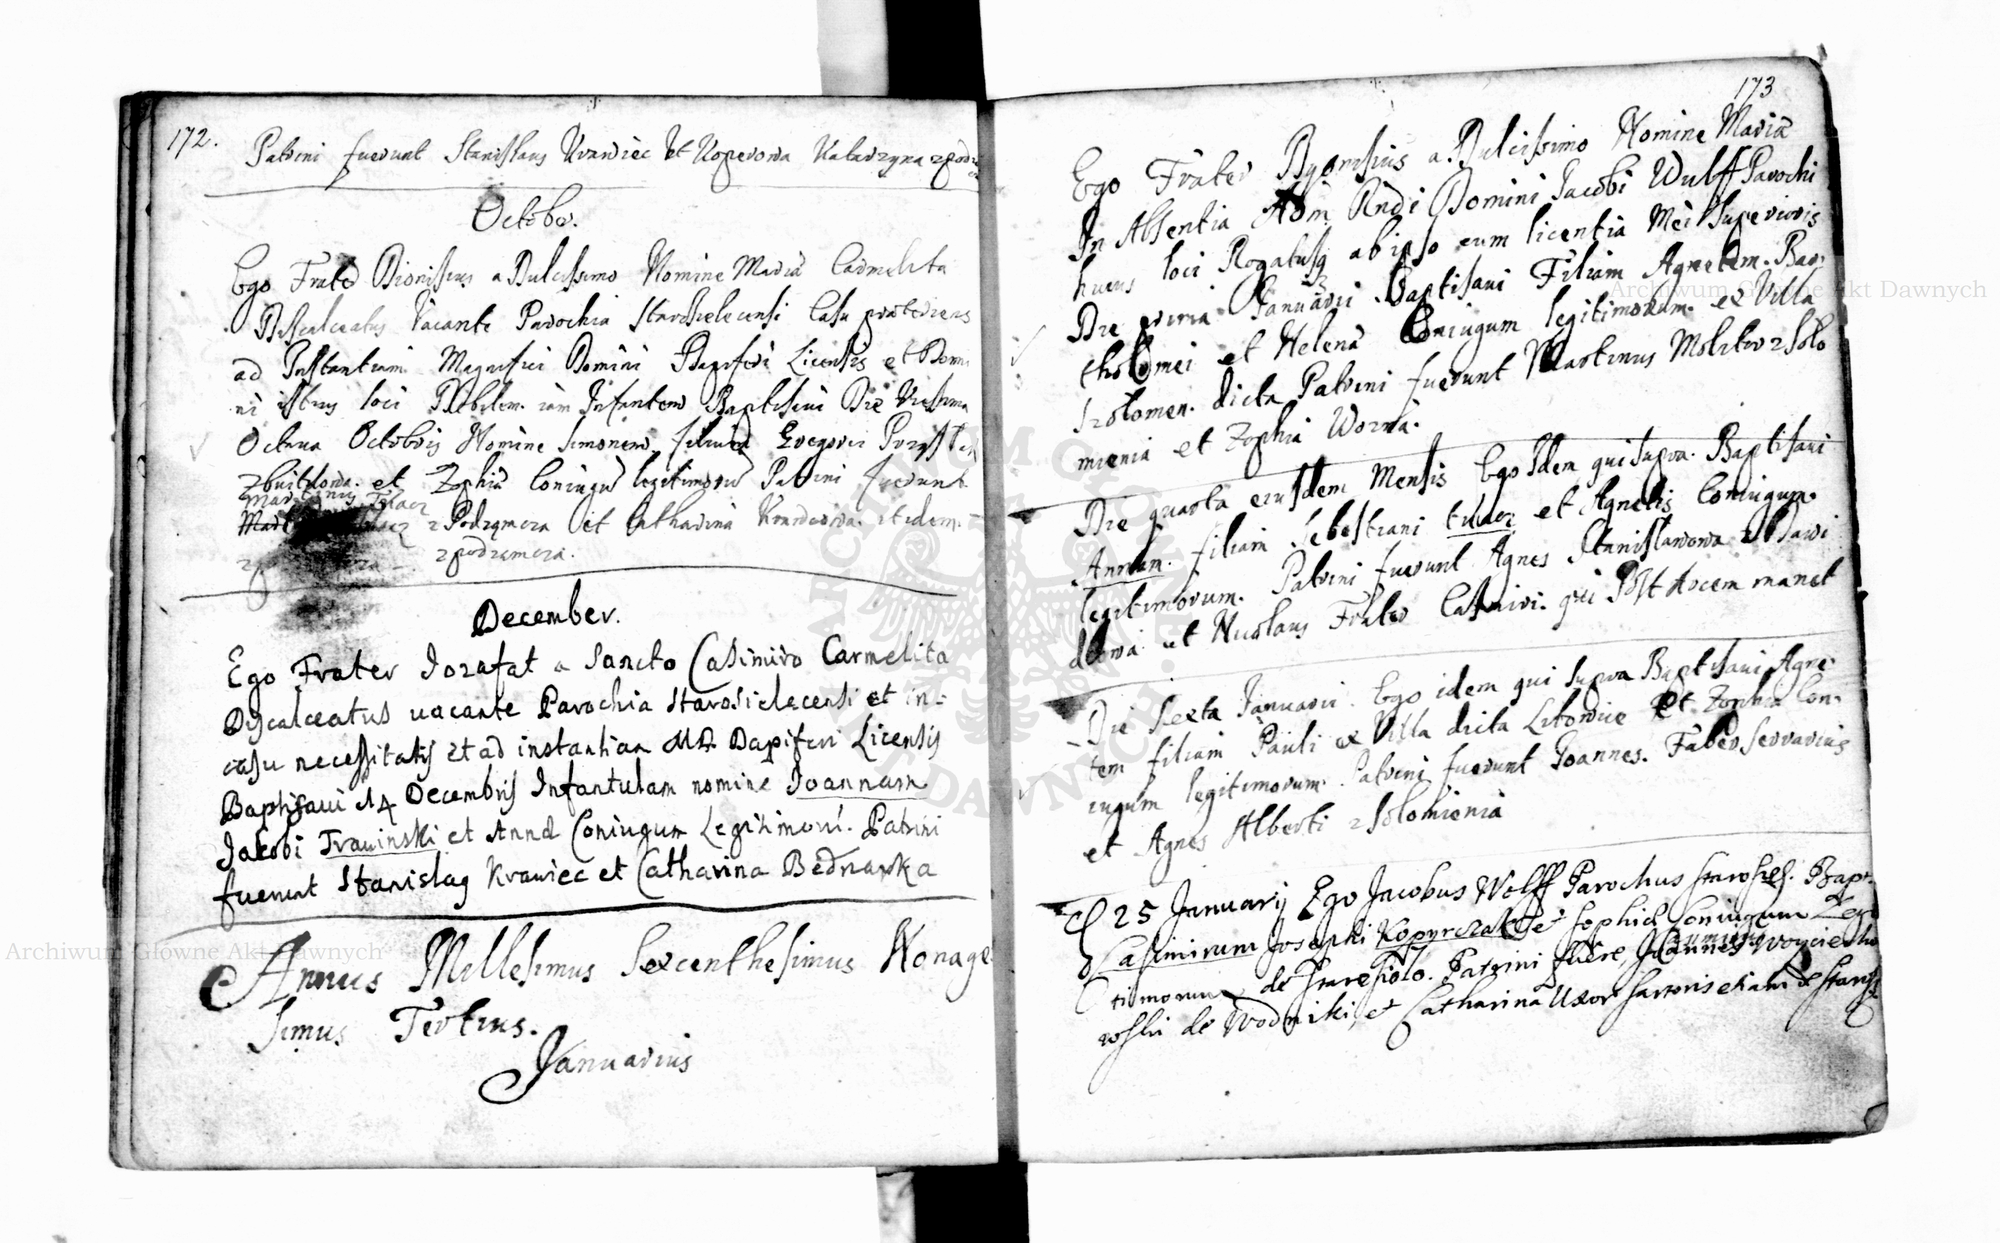 172.
Patrini fuerunt Stanislaus Krawiec et Koperowa Katarzyna z pod
October.
Ego Frater Dionisius a Dulcissimo Nomine Maria Carmelita
Discalceatus Vacante Parochia Starosielecensi Casu
ad Instantiam Magnifici Domini Dapiferi Licensis et Domi
ni istius loci Debilem iam Infantem Baptisavi Die
Octava Octobris Nomine Simonem filium Gregorii
et Zophia Coniugu legitimoru Patrini fuerunt
Martinus Tkacz
z Podzamcza et Catharina itidem
z podzamcza.
December.
Ego Frater Iozafat a Sancto Casimiro Carmelita
Discalceatus uacante Parochia Starosidecensi et in
casu necessitatis et ad instantiam MD Dapiferi Licensis
Baptisaui 14 Decembris Infantulam nomine Ioannam
Jakobi Trawinski et Anna Coniugum Legitimoru. Patrini
fuerunt Stanislaq Krawiec et Catharina Bednarka
Annus Millesimus Sexcenthesimus Nonage
simus Tertius.
Januarius
173
Ego Frater Dyonisius a Dulcissimo Nomine Maria
In Absentia Adm Rndi Domini Jacobi Wulff Parochi
huius loci Rogatusq ab ipso cum licentia Mei Superioris
Die Januarii Baptisavi Filiam Agnetem Bar
tholomei et Helena Coniugum legitimorum ex Villa
dicta Patrini fuerunt Martinus Molitor z Solo
mienia et Zophia Worna.
Die quarta eiusdem Mensis Ego Idem qui supra Baptisavi
Annam filiam Sebastiani tkacz et Agnetis Coniugum
legitimorum. Patrini fuerunt Agnes Stanislawowa
et Nicolaus Frater Casimiri qui Post Arcem manet
Die Sexta Januarii Ego idem qui supra Baptisavi Agne
tem filiam Pauli ex Villa dicta Litowice et Zophia Con
iugum legitimorum Patrini fuerunt Joannes Faber serrarius
et Agnes Alberti z Solomienia
25 Januarij Ego Jacobus Wolff Parochus Starosiel. Bapt
Casimirum Josephi Kopyrczak et Sophiae Coniugum Legi
timorum de Staresioło. Patrini fuere, Joannes
de Wodniki, et Catharina Uxor sartoris etiam de Starsi
Archiwum Główne Akt Dawnych
Archiwum Główne Akt Dawnych
ARCHIWUM GŁÓWNE AKT DAWNYCH